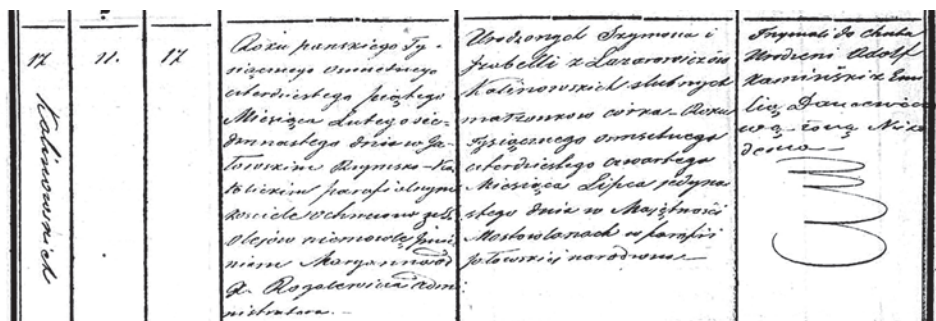 17
Kalinowskich
11.
17
Roku pańskiego Ty-
siącznego osmsetnego
czterdziestego piątego
Miesiąca Lutego sie-
dmnastego dnia w Ja-
łowskim Rzymsko-Ka-
tolickim parafialnym
kościele ochrzczono z SS.
Olejów niemowlę Imie-
niem Maryanna od
X. Rogalewicza Admi-
nistratora.
Urodzonych Szymona i
Izabelli z Łazarowiczów
Kalinowskich ślubnych
małżonków córka Roku
tysiącznego osmsetnego
czterdziestego czwartego
Miesiąca Lipca jedyna-
stego dnia w Majętności
Mostowlanach w parafii
Jałowskiej narodzona
Trzymali do Chrztu
Urodzeni Adolf
Kamiński z Emi-
lią
żoną Niko-
dema